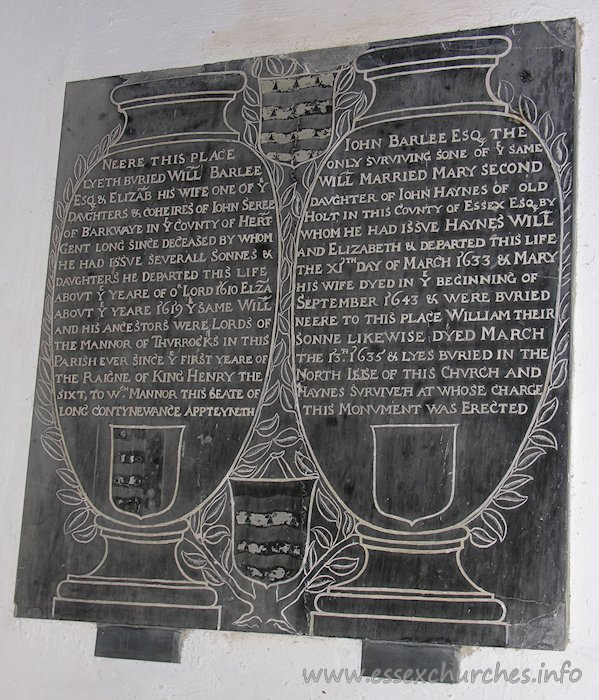 NEERE THIS PLACE
LYETH BURIED WILL̃ BARLEE
ESQ. & ELIZAB̃ HIS WIFE ONE OF Yᴱ
DAUGHTERS & COHEIRES OF IOHN SEREE
OF BARKWAYE IN Yᴱ COUNTY OF HERT̃
GENT LONG SINCE DECEASED BY WHOM
HE HAD ISSVE SEVERALL SONNES &
DAUGHTERS HE DEPARTED THIS LIFE
ABOUT Yᴱ YEARE OF Oᴿ LORD 1610 ELZ̃A
ABOUT Yᴱ YEARE 1619 Yᴱ SAME WILL̃
AND HIS ANCESTORS WERE LORDS OF
THE MANNOR OF THVRROCKS IN THIS
PARISH EVER SINCE Yᴱ FIRST YEARE OF
THE RAIGNE OF KING HENRY THE
SIXT, TO Wᶜᴴ MANNOR THIS SEATE OF
LONG CONTYNEWANCE APPTEYNETH
IOHN BARLEE ESQ. THE
ONLY SURVIVING SONE OF Yᴱ SAME
WILL̃ MARRIED MARY SECOND
DAUGHTER OF IOHN HAYNES OF OLD
HOLT IN THIS COUNTY OF ESSEX ESQ. BY
WHOM HE HAD ISSVE HAYNES WILL̃
AND ELIZABETH & DEPARTED THIS LIFE
THE XIᵀᴴ DAY OF MARCH 1633 & MARY
HIS WIFE DYED IN Yᴱ BEGINNING OF
SEPTEMBER 1643 & WERE BURIED
NEERE TO THIS PLACE WILLIAM THEIR
SONNE LIKEWISE DYED MARCH
THE 13ᵀᴴ 1635 & LYES BURIED IN THE
NORTH ILEISE OF THIS CHVRCH AND
HAYNES SURVIVETH AT WHOSE CHARGE
THIS MONVMENT WAS ERECTED
www.essexchurches.info